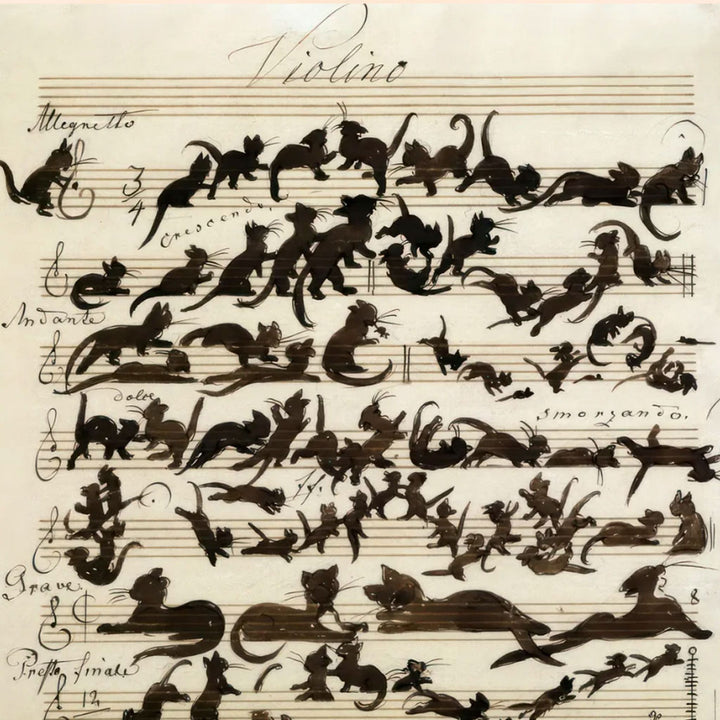 Violino
Allegretto
3
4
Crescendo.
Andante
dolce
smorzando.
ff.
Grave.
8
Presto finale
12